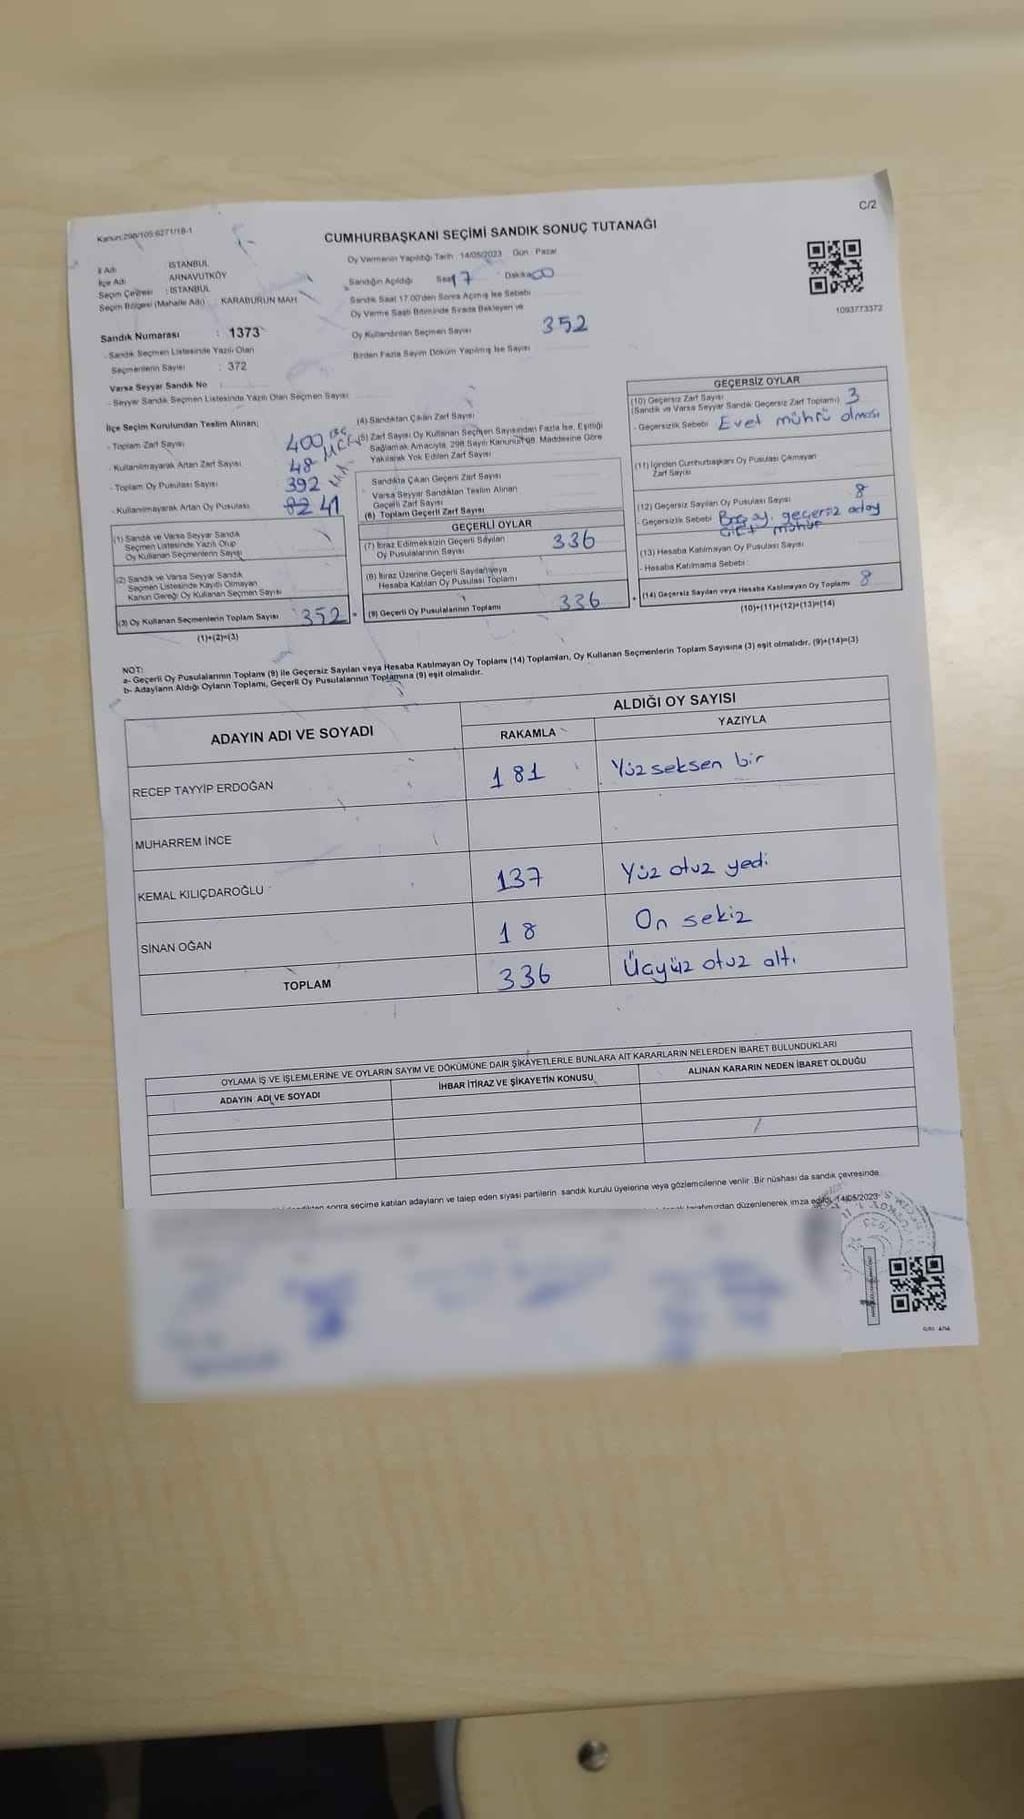 Kanun:298/105;6271/18-1
C/2
CUMHURBAŞKANI SEÇİMİ SANDIK SONUÇ TUTANAĞI
İl Adı : İSTANBUL
İlçe Adı : ARNAVUTKÖY
Seçim Çevresi : İSTANBUL
Seçim Bölgesi (Mahalle Adı) : KARABURUN MAH
Sandık Numarası : 1373
- Sandık Seçmen Listesinde Yazılı Olan
Seçmenlerin Sayısı : 372
Varsa Seyyar Sandık No
- Seyyar Sandık Seçmen Listesinde Yazılı Olan Seçmen Sayısı
Oy Vermenin Yapıldığı Tarih : 14/05/2023 Gün : Pazar
Sandığın Açıldığı Saat 17 Dakika 00
Sandık Saat 17.00'den Sonra Açılmış İse Sebebi
Oy Verme Saati Bitiminde Sırada Bekleyen ve
Oy Kullandırılan Seçmen Sayısı 352
Birden Fazla Sayım Döküm Yapılmış İse Sayısı
1093773372
İlçe Seçim Kurulundan Teslim Alınan;
- Toplam Zarf Sayısı 400
- Kullanılmayarak Artan Zarf Sayısı 48
- Toplam Oy Pusulası Sayısı 392
- Kullanılmayarak Artan Oy Pusulası 41
(1) Sandık ve Varsa Seyyar Sandık
Seçmen Listesinde Yazılı Olup
Oy Kullanan Seçmenlerin Sayısı
(2) Sandık ve Varsa Seyyar Sandık
Seçmen Listesinde Kayıtlı Olmayan
Kanun Gereği Oy Kullanan Seçmen Sayısı
(3) Oy Kullanan Seçmenlerin Toplam Sayısı 352 =
(1)+(2)=(3)
(4) Sandıktan Çıkan Zarf Sayısı
(5) Zarf Sayısı Oy Kullanan Seçmen Sayısından Fazla İse, Eşitliği
Sağlamak Amacıyla, 298 Sayılı Kanunun 98. Maddesine Göre
Yakılarak Yok Edilen Zarf Sayısı
Sandıkta Çıkan Geçerli Zarf Sayısı
Varsa Seyyar Sandıktan Teslim Alınan
Geçerli Zarf Sayısı
(6) Toplam Geçerli Zarf Sayısı
GEÇERLİ OYLAR
(7) İtiraz Edilmeksizin Geçerli Sayılan
Oy Pusulalarının Sayısı 336
(8) İtiraz Üzerine Geçerli Sayılan veya
Hesaba Katılan Oy Pusulası Toplamı
(9) Geçerli Oy Pusulalarının Toplamı 336 +
GEÇERSİZ OYLAR
(10) Geçersiz Zarf Sayısı
(Sandık ve Varsa Seyyar Sandık Geçersiz Zarf Toplamı) 3
- Geçersizlik Sebebi : Evet mührü olması
(11) İçinden Cumhurbaşkanı Oy Pusulası Çıkmayan
Zarf Sayısı
(12) Geçersiz Sayılan Oy Pusulası Sayısı 8
- Geçersizlik Sebebi geçersiz aday
mühür
(13) Hesaba Katılmayan Oy Pusulası Sayısı
- Hesaba Katılmama Sebebi :
(14) Geçersiz Sayılan veya Hesaba Katılmayan Oy Toplamı 8
(10)+(11)+(12)+(13)=(14)
NOT:
a- Geçerli Oy Pusulalarının Toplamı (9) ile Geçersiz Sayılan veya Hesaba Katılmayan Oy Toplamı (14) Toplamları, Oy Kullanan Seçmenlerin Toplam Sayısına (3) eşit olmalıdır. (9)+(14)=(3)
b- Adayların Aldığı Oyların Toplamı, Geçerli Oy Pusulalarının Toplamına (9) eşit olmalıdır.
ADAYIN ADI VE SOYADI
ALDIĞI OY SAYISI
RAKAMLA YAZIYLA
RECEP TAYYİP ERDOĞAN 181 Yüz seksen bir
MUHARREM İNCE
KEMAL KILIÇDAROĞLU 137 Yüz otuz yedi
SİNAN OĞAN 18 On sekiz
TOPLAM 336 Üçyüz otuz altı
OYLAMA İŞ VE İŞLEMLERİNE VE OYLARIN SAYIM VE DÖKÜMÜNE DAİR ŞİKAYETLERLE BUNLARA AİT KARARLARIN NELERDEN İBARET BULUNDUKLARI
ADAYIN ADI VE SOYADI İHBAR İTİRAZ VE ŞİKAYETİN KONUSU ALINAN KARARIN NEDEN İBARET OLDUĞU
sonra seçime katılan adayların ve talep eden siyasi partilerin sandık kurulu üyelerine veya gözlemcilerine verilir. Bir nüshası da sandık çevresinde
tarafımızdan düzenlenerek imza edildi. 14/05/2023